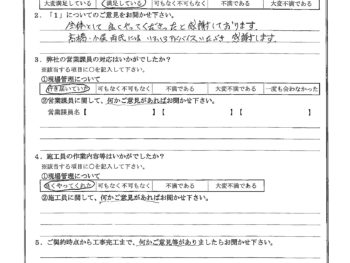 大変満足している 満足している 可もなく不可もなく 不満である 大変不満である
2．「1」についてのご意見をお聞かせ下さい。
全体として良くやってくださったと感謝しております。
には いろいろアドバイスいただき 感謝します。
3．弊社の営業課員の対応はいかがでしたか？
※該当する項目に○を記入して下さい。
①現場管理について
行き届いていた 可もなく不可もなく 不満である 大変不満である 一度も会わなかった
②営業課員に関して、何かご意見があればお聞かせ下さい。
営業課員名【 】【 】【 】
4．施工員の作業内容等はいかがでしたか？
※該当する項目に○を記入して下さい。
①現場管理について
良くやってくれた 可もなく不可もなく 不満である 大変不満である
②施工員に関して、何かご意見があればお聞かせ下さい。
5．ご契約時点から工事完工まで、何かご意見等がありましたらお聞かせ下さい。